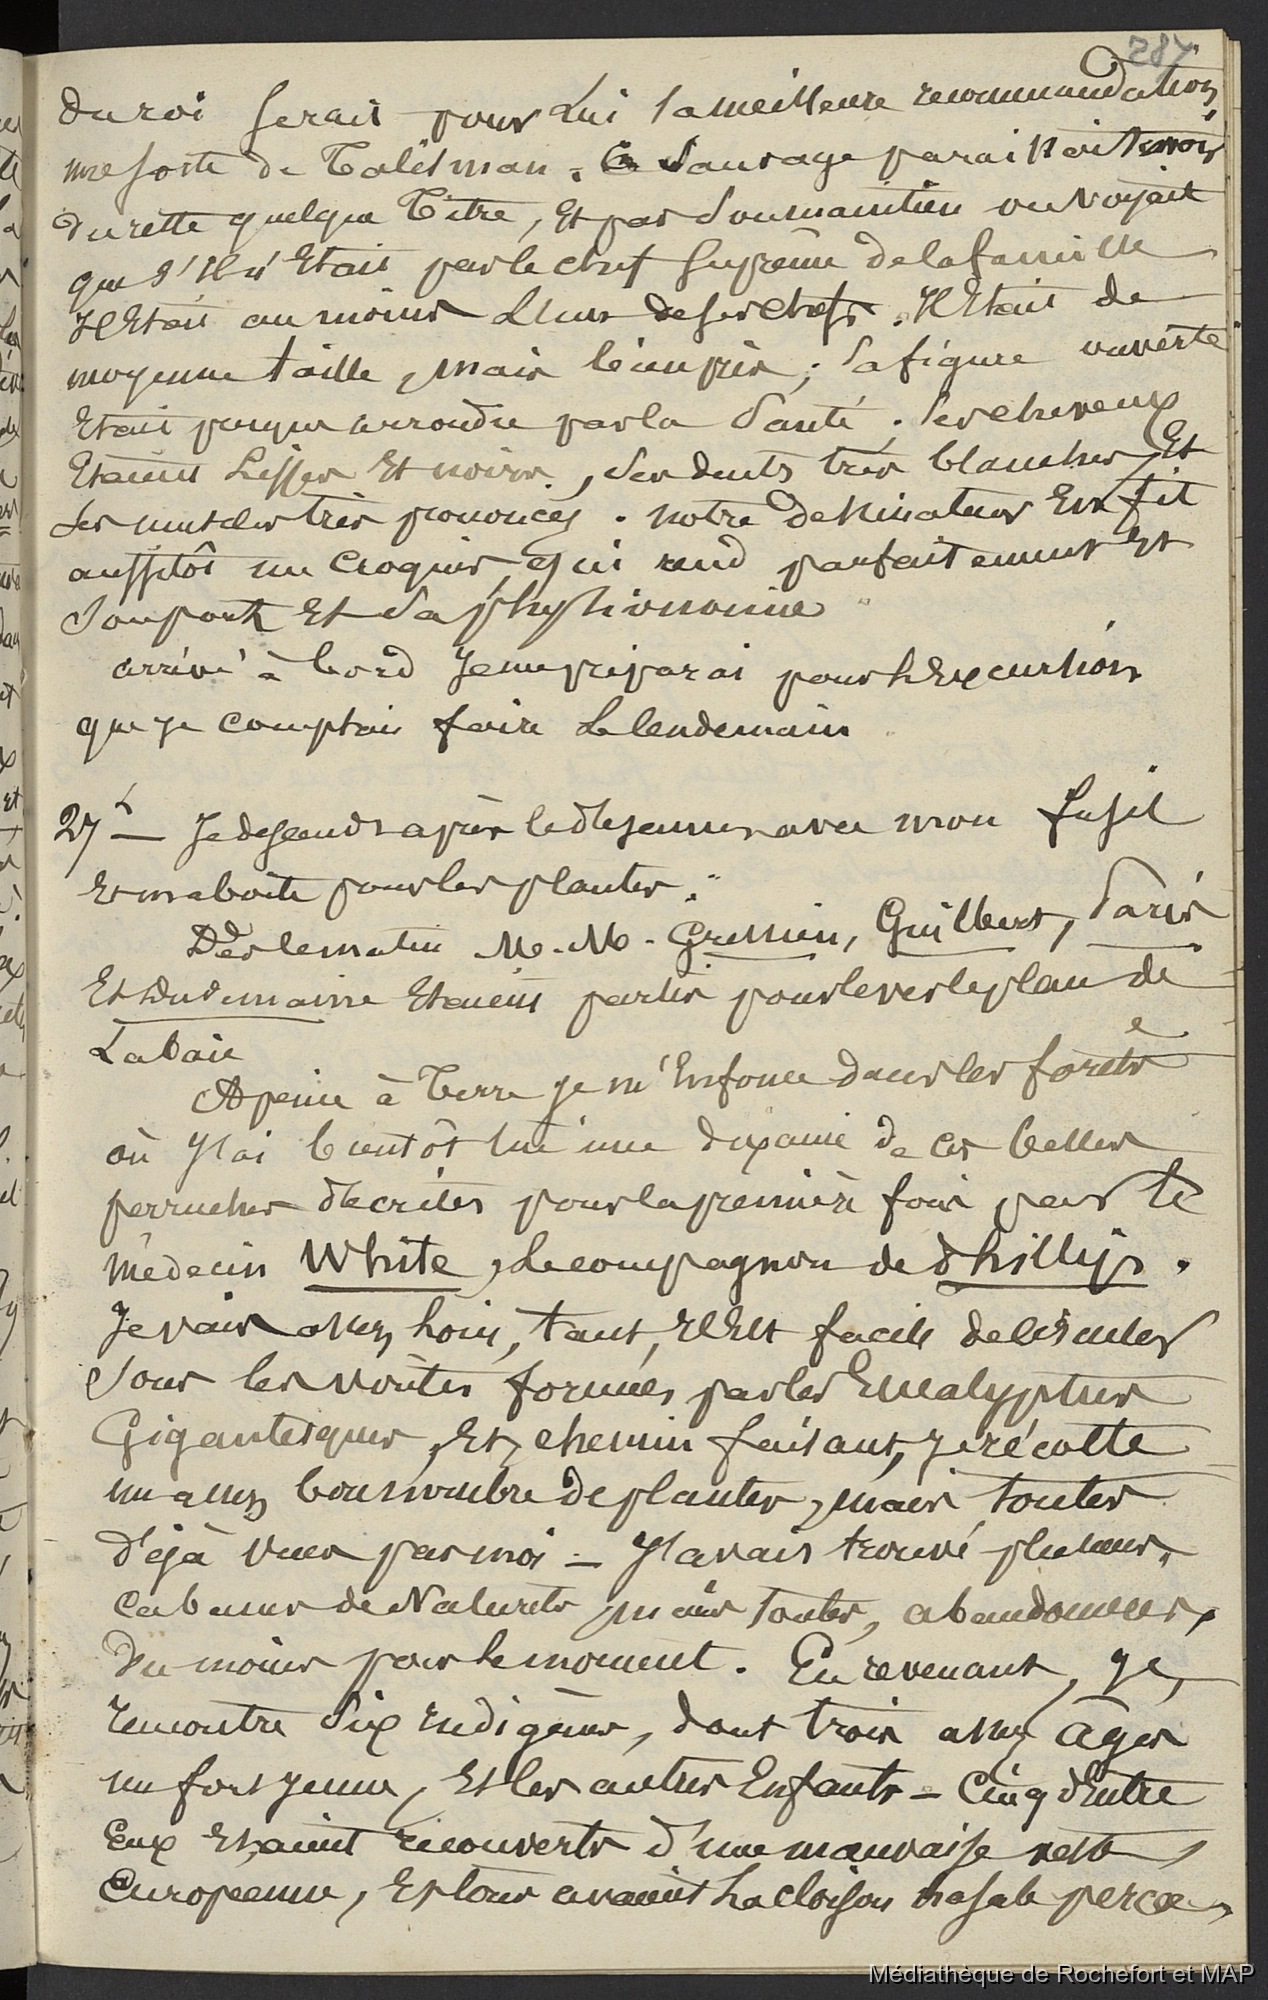 287
du roi serait pour Lui la meilleure recommandation,
une sorte de Talisman. Ce Sauvage paraissait avoir
du reste quelque Titre, Et par Son maintien on voyait
que S'Il n'Etait pas le chef Suprême de la famille
Il Etait au moins L'Un de ses chefs. Il Etait de
moyenne taille, mais bien pris; Sa figure ouverte
Etait presque arrondie par la Santé. Ses cheveux
Etaient Lisses Et noirs, Ses dents très blanches, Et
Ses muscles très prononcés. Notre Dessinateur En fit
aussitôt un Croquis, qui rend parfaitement Et
Son port Et Sa physionomie
arrivé à bord Je me préparai pour L'Excursion
que Je Comptais faire Le lendemain
27 — Je descends après le déjeuner avec mon fusil
Et ma boite pour les plantes.
Dès le matin M.M. Gressien, Guilbert, Paris
Et Dudemaine Etaient partis pour lever le plan de
La baie
A peine à Terre Je m'Enfonce dans les forêts
où J'ai bientôt tué une dixaine de ces belles
perruches décrites pour la première fois par le
médecin White, Le compagnon de Phillip.
Je vais assez Loin, tant, Il Est facile de circuler
Sous les voûtes formées par les Eucalyptus
Gigantesques, Et, chemin faisant, Je récolte
un assez bon nombre de plantes, mais toutes
déjà vues par moi — J'avais trouvé plusieurs
Cabanes de Naturels, mais toutes, abandonnées,
Du moins pour le moment. En revenant, Je,
rencontre Six Indigènes, dont trois assez âgés
un fort Jeune, Et les autres Enfants — Cinq d'Entre
Eux Etaient recouverts d'une mauvaise veste
Européenne, Et tous avaient La cloison nasale percée,
Médiathèque de Rochefort et MAP